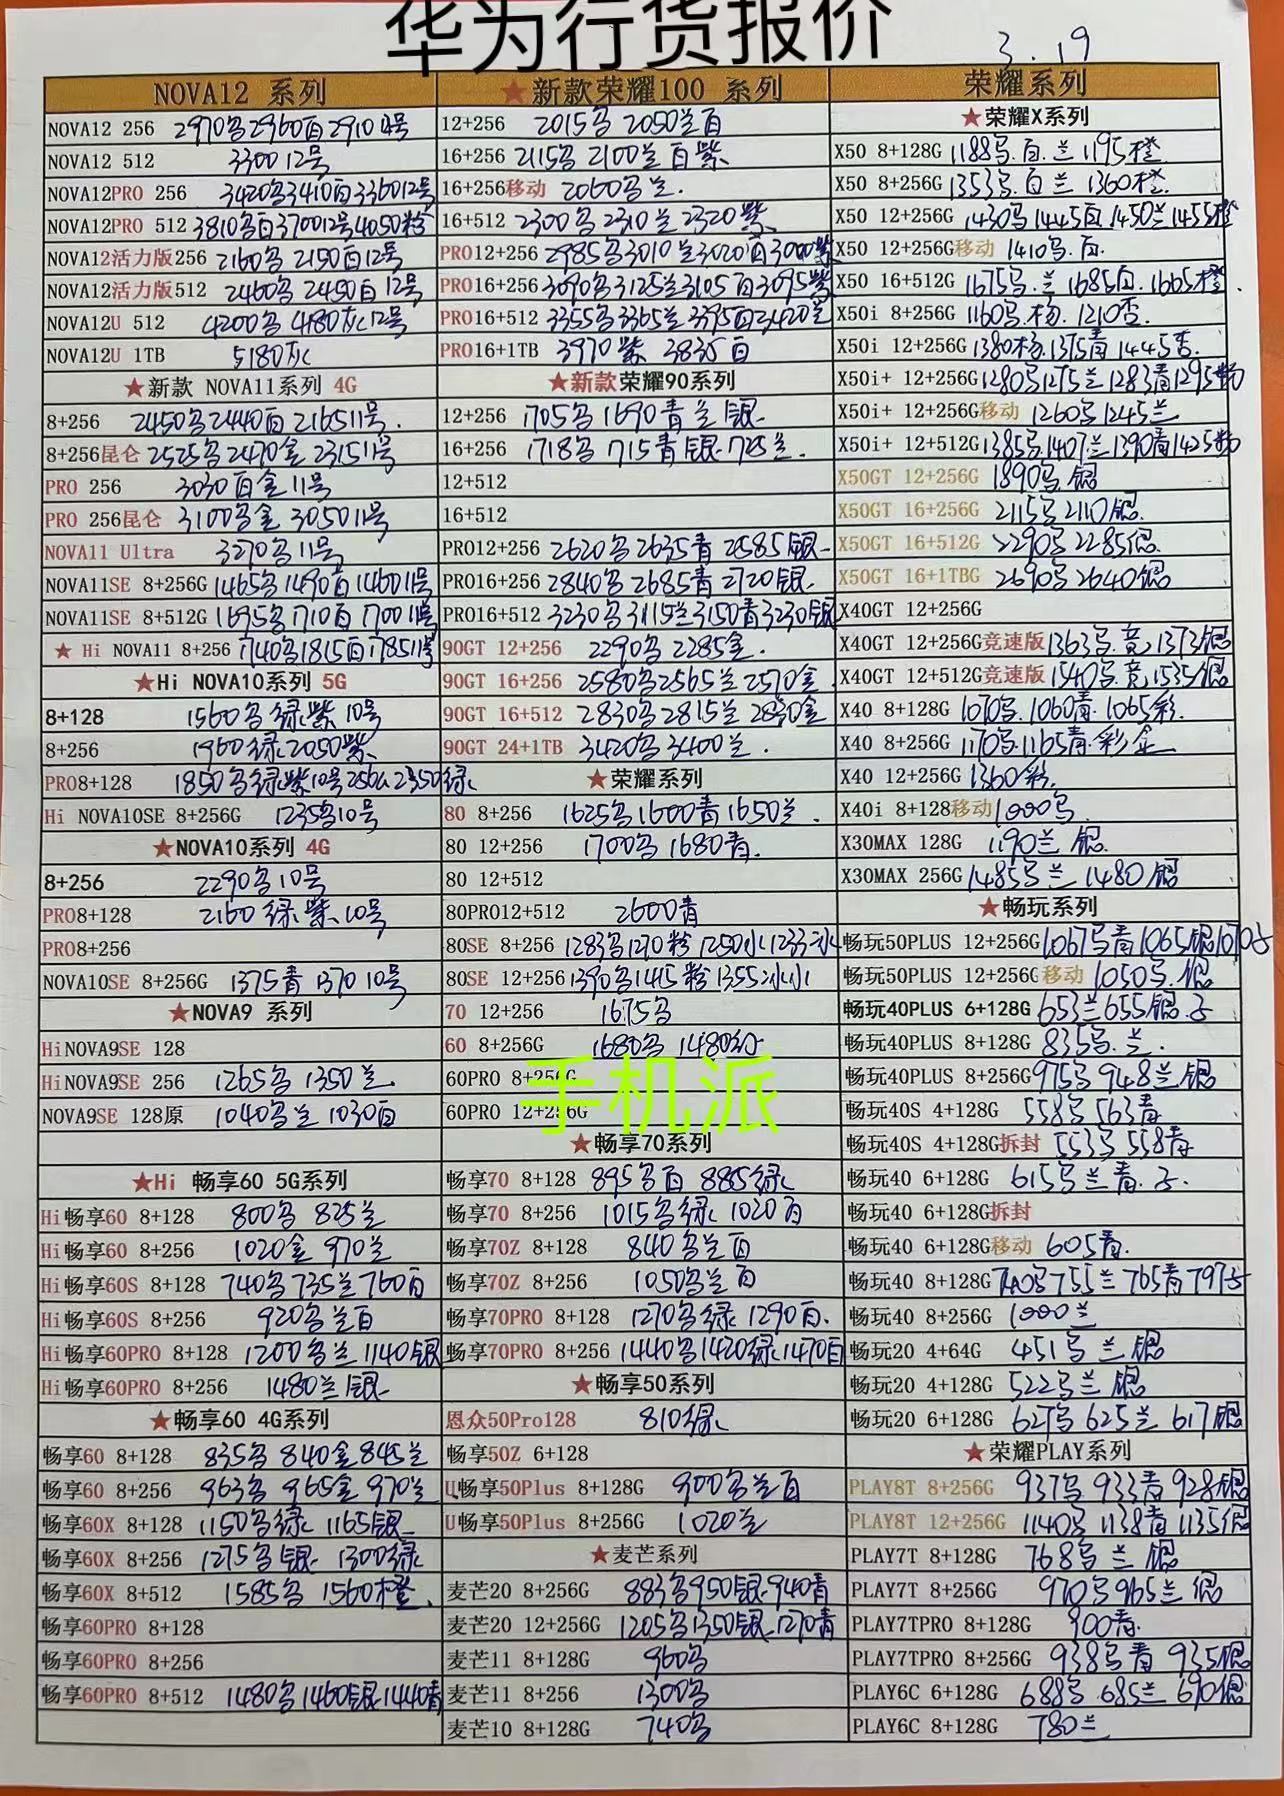 华为行货报价
3.19
NOVA12 系列
NOVA12 256 2970鸟2960百2910 12号
NOVA12 512 3300 12号
NOVA12PRO 256 3420鸟3410百336012号
NOVA12PRO 512 3810鸟百370012号4050粉
NOVA12活力版256 2160鸟 2150百12号
NOVA12活力版512 2460鸟 2450百 12号
NOVA12U 512 4200鸟 4180灰12号
NOVA12U 1TB 5180灰
★新款 NOVA11系列 4G
8+256 2450鸟2440百 216511号.
8+256昆仑 2525鸟2470金 231511号
PRO 256 3030百金11号
PRO 256昆仑 3100鸟金 305011号
NOVA11 Ultra 3270鸟11号
NOVA11SE 8+256G 1465鸟1490百146011号
NOVA11SE 8+512G 1695鸟1710百170011号
★ Hi NOVA11 8+256 1740鸟1815百178511号
★Hi NOVA10系列 5G
8+128 1560鸟 绿 紫 10号
8+256 1960绿2050紫
PRO8+128 1850鸟绿紫10号256G2350绿
Hi NOVA10SE 8+256G 1235鸟10号
★NOVA10系列 4G
8+256 2290鸟10号
PRO8+128 2160绿 紫.10号
PRO8+256
NOVA10SE 8+256G 1375青 1370 10号
★NOVA9 系列
HiNOVA9SE 128
HiNOVA9SE 256 1265鸟 1350兰.
NOVA9SE 128原 1040鸟兰 1030百
★Hi 畅享60 5G系列
Hi畅享60 8+128 800鸟 825兰
Hi畅享60 8+256 1020金 970兰
Hi畅享60S 8+128 740鸟735兰760百
Hi畅享60S 8+256 920鸟兰百
Hi畅享60PRO 8+128 1200鸟兰1140银
Hi畅享60PRO 8+256 1480兰银
★畅享60 4G系列
畅享60 8+128 835鸟 840金845兰
畅享60 8+256 963鸟 965金 970兰
畅享60X 8+128 1150鸟绿 1165银
畅享60X 8+256 1275鸟银 1300绿
畅享60X 8+512 1585鸟 1560橙.
畅享60PRO 8+128
畅享60PRO 8+256
畅享60PRO 8+512 1480鸟1460银1440青
★新款荣耀100 系列
12+256 2015鸟 2050兰百
16+256 2115鸟 2100兰 百紫
16+256移动 2060鸟兰.
16+512 2300鸟 2310兰 2320紫
PRO12+256 2985鸟3010兰3020百3000紫
PRO16+256 3090鸟3125兰3105百3095紫
PRO16+512 3355鸟3365兰3395百3420兰
PRO16+1TB 3970紫 3835百
★新款荣耀90系列
12+256 1705鸟1690青兰银
16+256 1718鸟 715青银 725兰.
12+512
16+512
PRO12+256 2620鸟2635青2585银
PRO16+256 2840鸟2685青2720银
PRO16+512 3230鸟3115兰3150青3230银
90GT 12+256 2290鸟 2285金.
90GT 16+256 2580鸟2565兰2570金
90GT 16+512 2830鸟2815兰2830金
90GT 24+1TB 3420鸟3400兰.
★荣耀系列
80 8+256 1625鸟1600青1650兰.
80 12+256 1700鸟1680青.
80 12+512
80PRO12+512 2600青
80SE 8+256 1283鸟1270粉 1250水1233冰
80SE 12+256 1390鸟1415粉1355冰水
70 12+256 1675鸟
60 8+256G 1680鸟 1480
60PRO 8+256G
60PRO 12+256G
手机派
★畅享70系列
畅享70 8+128 895鸟百 885绿
畅享70 8+256 1015鸟绿 1020百
畅享70Z 8+128 840鸟兰百
畅享70Z 8+256 1050鸟兰百
畅享70PRO 8+128 1270鸟绿 1290百.
畅享70PRO 8+256 1440鸟1420绿1470百
★畅享50系列
恩众50Pro128 810绿
畅享50Z 6+128
U畅享50Plus 8+128G 900鸟兰百
U畅享50Plus 8+256G 1020兰
★麦芒系列
麦芒20 8+256G 883鸟950银940青
麦芒20 12+256G 1205鸟1350银1270青
麦芒11 8+128G 960鸟
麦芒11 8+256 1300鸟
麦芒10 8+128G 740鸟
荣耀系列
★荣耀X系列
X50 8+128G 1188鸟.百.兰 1195橙
X50 8+256G 1353鸟.百 兰 1360橙.
X50 12+256G 1430鸟1445百.1450兰1455橙
X50 12+256G移动 1410鸟.百.
X50 16+512G 1675鸟.兰 1685百.1665橙.
X50i 8+256G 1160鸟.杨.1210杏.
X50i 12+256G 1380杨.1375青 1445杏.
X50i+ 12+256G 1280鸟1275兰1283青1295粉
X50i+ 12+256G移动 1260鸟1245兰
X50i+ 12+512G 1385鸟1407兰1390青1425粉
X50GT 12+256G 1890鸟.银
X50GT 16+256G 2115鸟2110银.
X50GT 16+512G 2290鸟 2285银.
X50GT 16+1TBG 2690鸟2640银
X40GT 12+256G
X40GT 12+256G竞速版 1363鸟.竞.1373银
X40GT 12+512G竞速版 1540鸟.竞1535银
X40 8+128G 1070鸟.1060青.1065彩.
X40 8+256G 1170鸟.1165青.彩 金
X40 12+256G 1360彩.
X40i 8+128移动 1000鸟
X30MAX 128G 1190兰 银.
X30MAX 256G 1485鸟 兰 1480银
★畅玩系列
畅玩50PLUS 12+256G 1067鸟青1065银1070
畅玩50PLUS 12+256G移动 1050鸟.银
畅玩40PLUS 6+128G 653兰655银.子
畅玩40PLUS 8+128G 835鸟.兰.
畅玩40PLUS 8+256G 975鸟948兰银
畅玩40S 4+128G 558鸟563青
畅玩40S 4+128G拆封 553鸟 558青
畅玩40 6+128G 615鸟兰青.子.
畅玩40 6+128G拆封
畅玩40 6+128G移动 605青.
畅玩40 8+128G 740鸟755兰765青797
畅玩40 8+256G 1000兰
畅玩20 4+64G 451鸟 兰 银
畅玩20 4+128G 522鸟兰 银
畅玩20 6+128G 627鸟 625兰 617银
★荣耀PLAY系列
PLAY8T 8+256G 937鸟 933青 928银
PLAY8T 12+256G 1140鸟 1138青1135银
PLAY7T 8+128G 768鸟 兰 银
PLAY7T 8+256G 970鸟965兰 银
PLAY7TPRO 8+128G 900青.
PLAY7TPRO 8+256G 938鸟青 935银
PLAY6C 6+128G 688鸟.685兰 690银
PLAY6C 8+128G 780兰